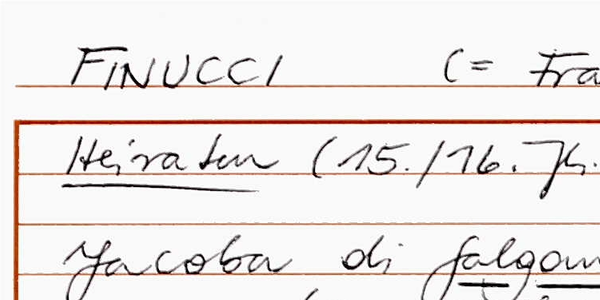 FINUCCI (= Fra
Heiraten (15./16. Jh.
Jacoba di falgan